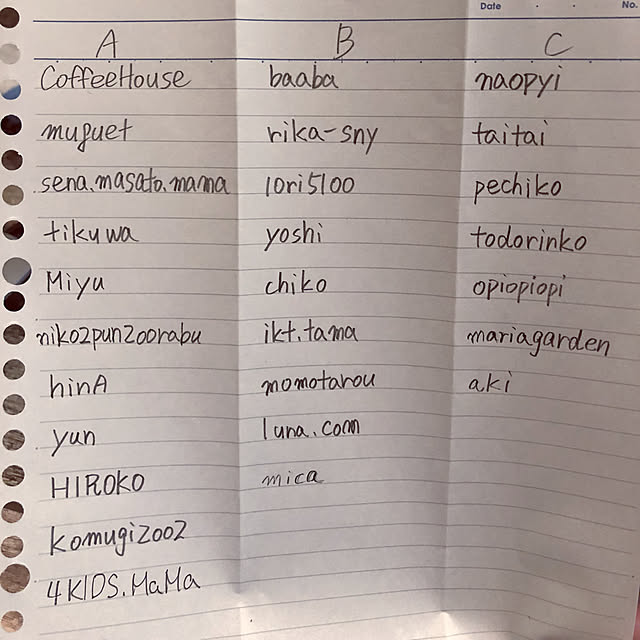 Date . . No.
A B C
CoffeeHouse baaba naopyi
muguet rika-sny taitai
sena.masato.mama lori5100 pechiko
tikuwa yoshi todorinko
Miyu chiko opiopiopi
niko2pun2oorabu ikt.tama mariagarden
hinA momotarou a.ki
yun luna.com
HIROKO mica
komugi2002
4KIDS.MaMa